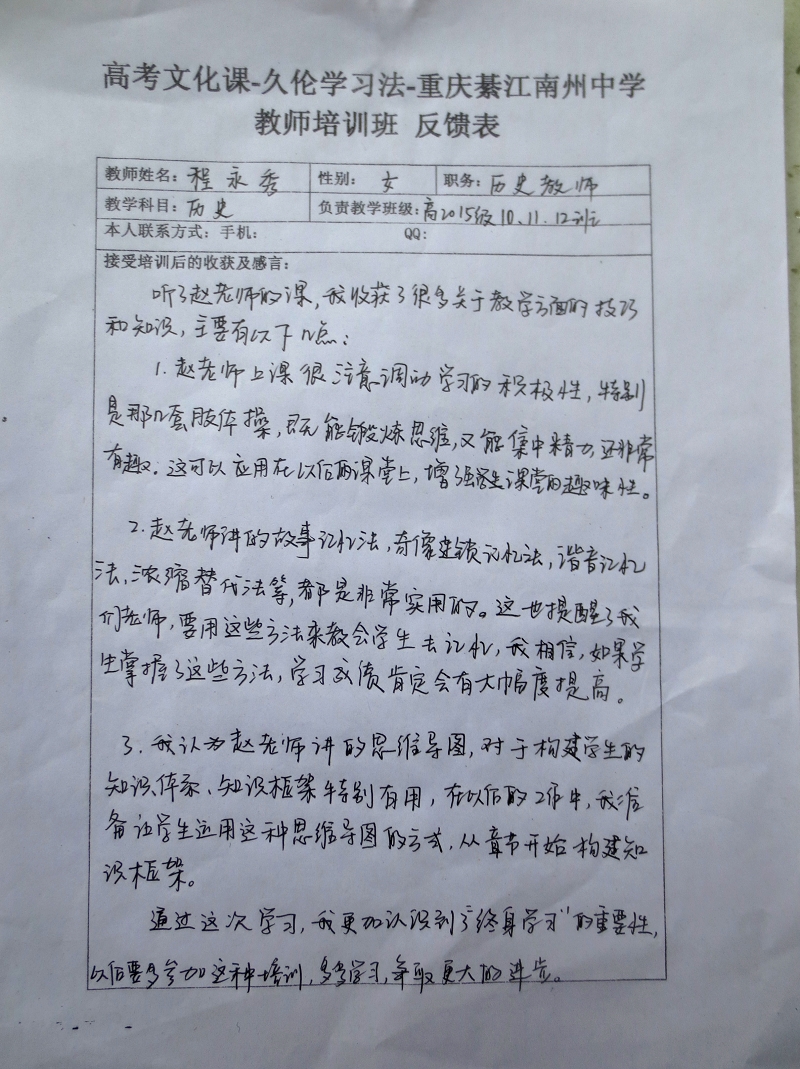 高考文化课-久伦学习法-重庆綦江南州中学
教师培训班 反馈表
教师姓名：程永秀 性别：女 职务：历史教师
教学科目：历史 负责教学班级：高2015级10、11、12班
本人联系方式：手机： QQ：
接受培训后的收获及感言：
听了赵老师的课，我收获了很多关于教学方面的技巧
和知识，主要有以下几点：
1. 赵老师上课很注意调动学习的积极性，特别
是那几套肢体操，既能锻炼思维，又能集中精力，还非常
有趣。这可以应用在以后的课堂上，增强学生课堂的趣味性。
2. 赵老师讲的故事记忆法，奇像连锁记忆法，谐音记忆
法，浓缩替代法等，都是非常实用的。这也提醒了我
们老师，要用这些方法来教会学生去记忆，我相信，如果学
生掌握了这些方法，学习成绩肯定会有大幅度提高。
3. 我认为赵老师讲的思维导图，对于构建学生的
知识体系、知识框架特别有用，在以后的工作中，我准
备让学生运用这种思维导图的方式，从章节开始构建知
识框架。
通过这次学习，我更加认识到了“终身学习”的重要性，
以后要多参加这种培训，多多学习，争取更大的进步。